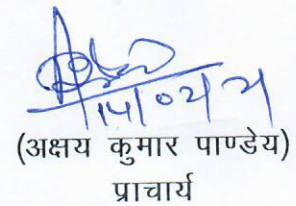 14/02/21
(अक्षय कुमार पाण्डेय)
प्राचार्य